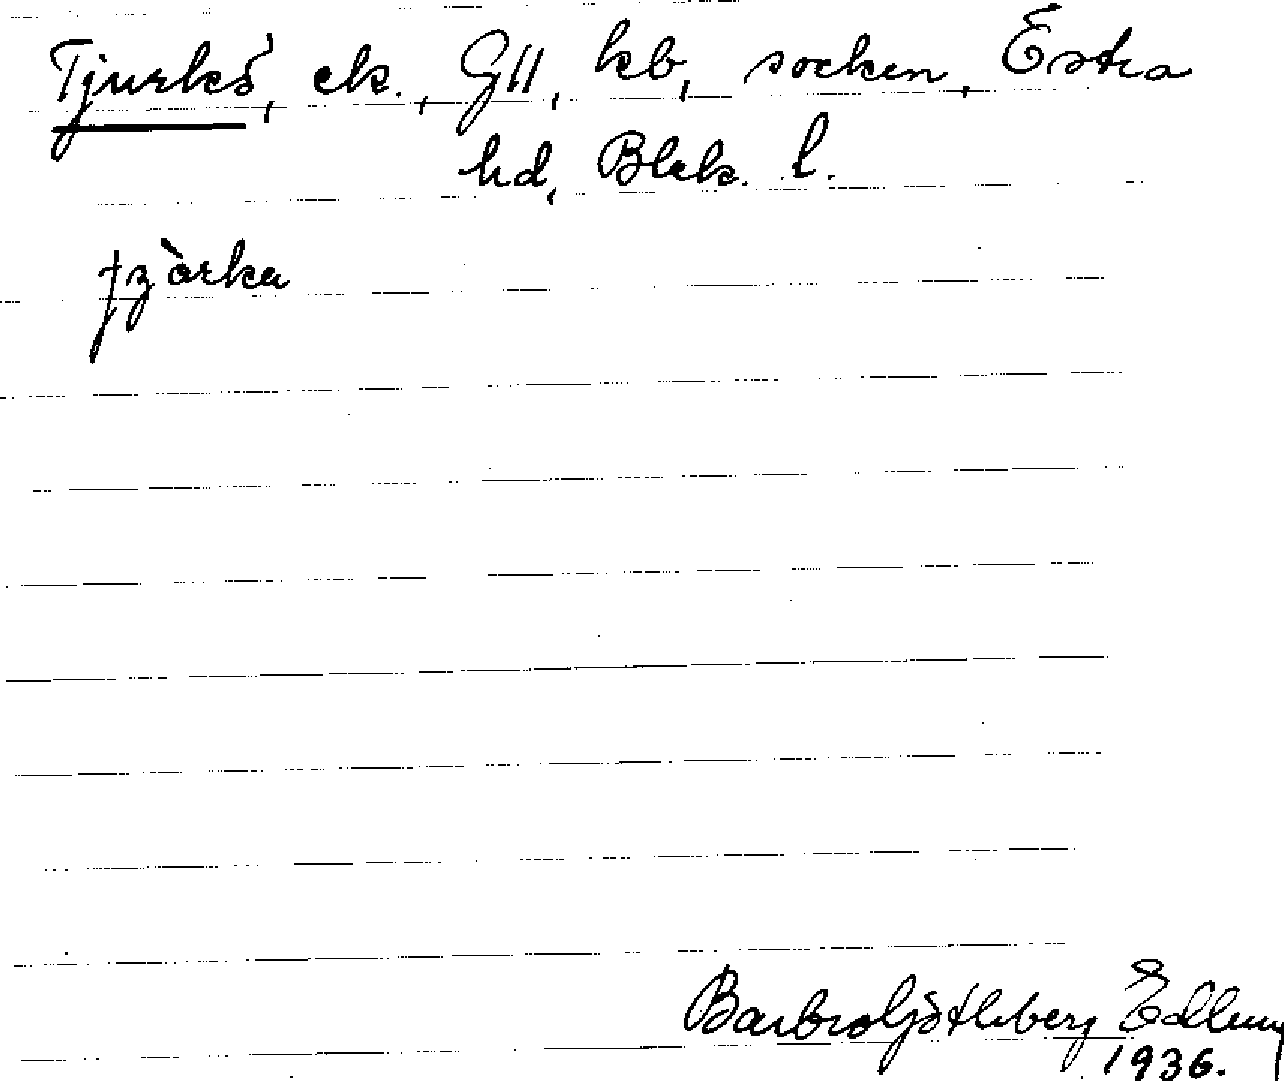 Tjurkö, ek., G11, kb, socken, Östra
hd, Blek. l.
Barbro Götleberg Edlung
1936.